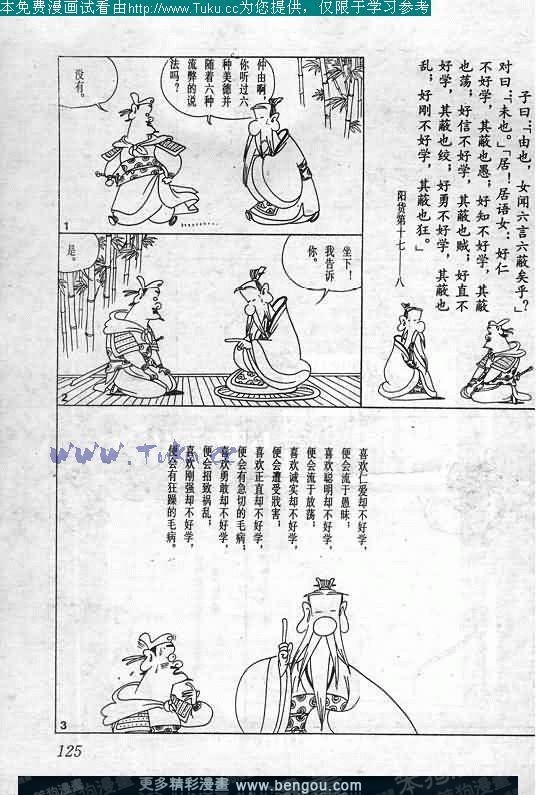 本免费漫画试看由http://www.Tuku.cc为您提供，仅限于学习参考
子曰："由也，女闻六言六蔽矣乎？"
对曰："未也。""居！居语女：好仁
不好学，其蔽也愚；好知不好学，其蔽
也荡；好信不好学，其蔽也贼；好直不
好学，其蔽也绞；好勇不好学，其蔽也
乱；好刚不好学，其蔽也狂。"
阳货第十七——八
仲由啊，
你听过六
种美德并
随着六种
流弊的说
法吗？
没有。
1
坐下！
我告诉
你。
是。
2
喜欢仁爱却不好学，
便会流于愚昧；
喜欢聪明却不好学，
便会流于放荡；
喜欢诚实却不好学，
便会遭受戕害；
喜欢正直却不好学，
便会有急切的毛病；
喜欢勇敢却不好学，
便会招致祸乱；
喜欢刚强却不好学，
便会有狂躁的毛病。
www.Tuku.cc
3
125
更多精彩漫畫 www.bengou.com
笨狗漫畫